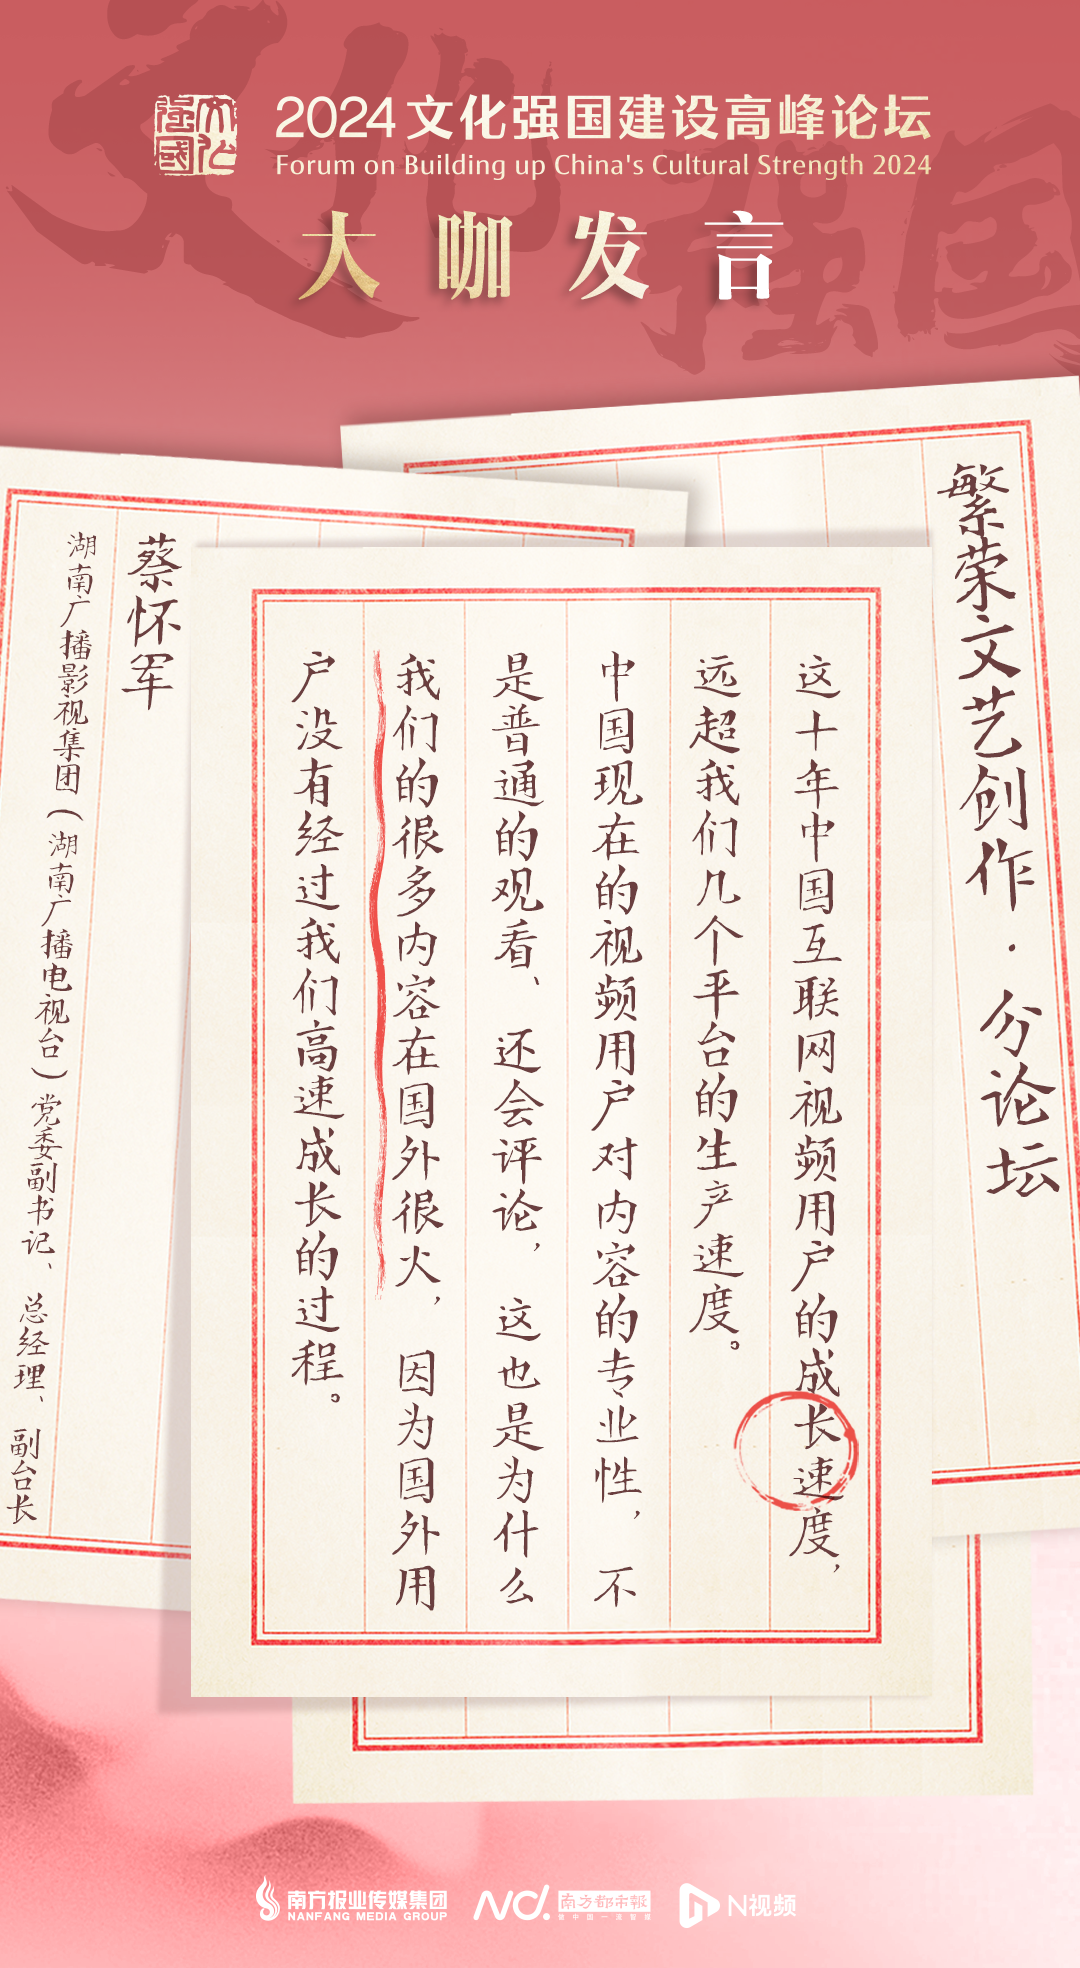 文化强国
2024文化强国建设高峰论坛
Forum on Building up China's Cultural Strength 2024
大咖发言
繁荣文艺创作·分论坛
这十年中国互联网视频用户的成长速度，
远超我们几个平台的生产速度。
中国现在的视频用户对内容的专业性，不
是普通的观看、还会评论，这也是为什么
我们的很多内容在国外很火，因为国外用
户没有经过我们高速成长的过程。
蔡怀军
湖南广播影视集团（湖南广播电视台）党委副书记、总经理、副台长
南方报业传媒集团
NANFANG MEDIA GROUP
南方都市报
N视频